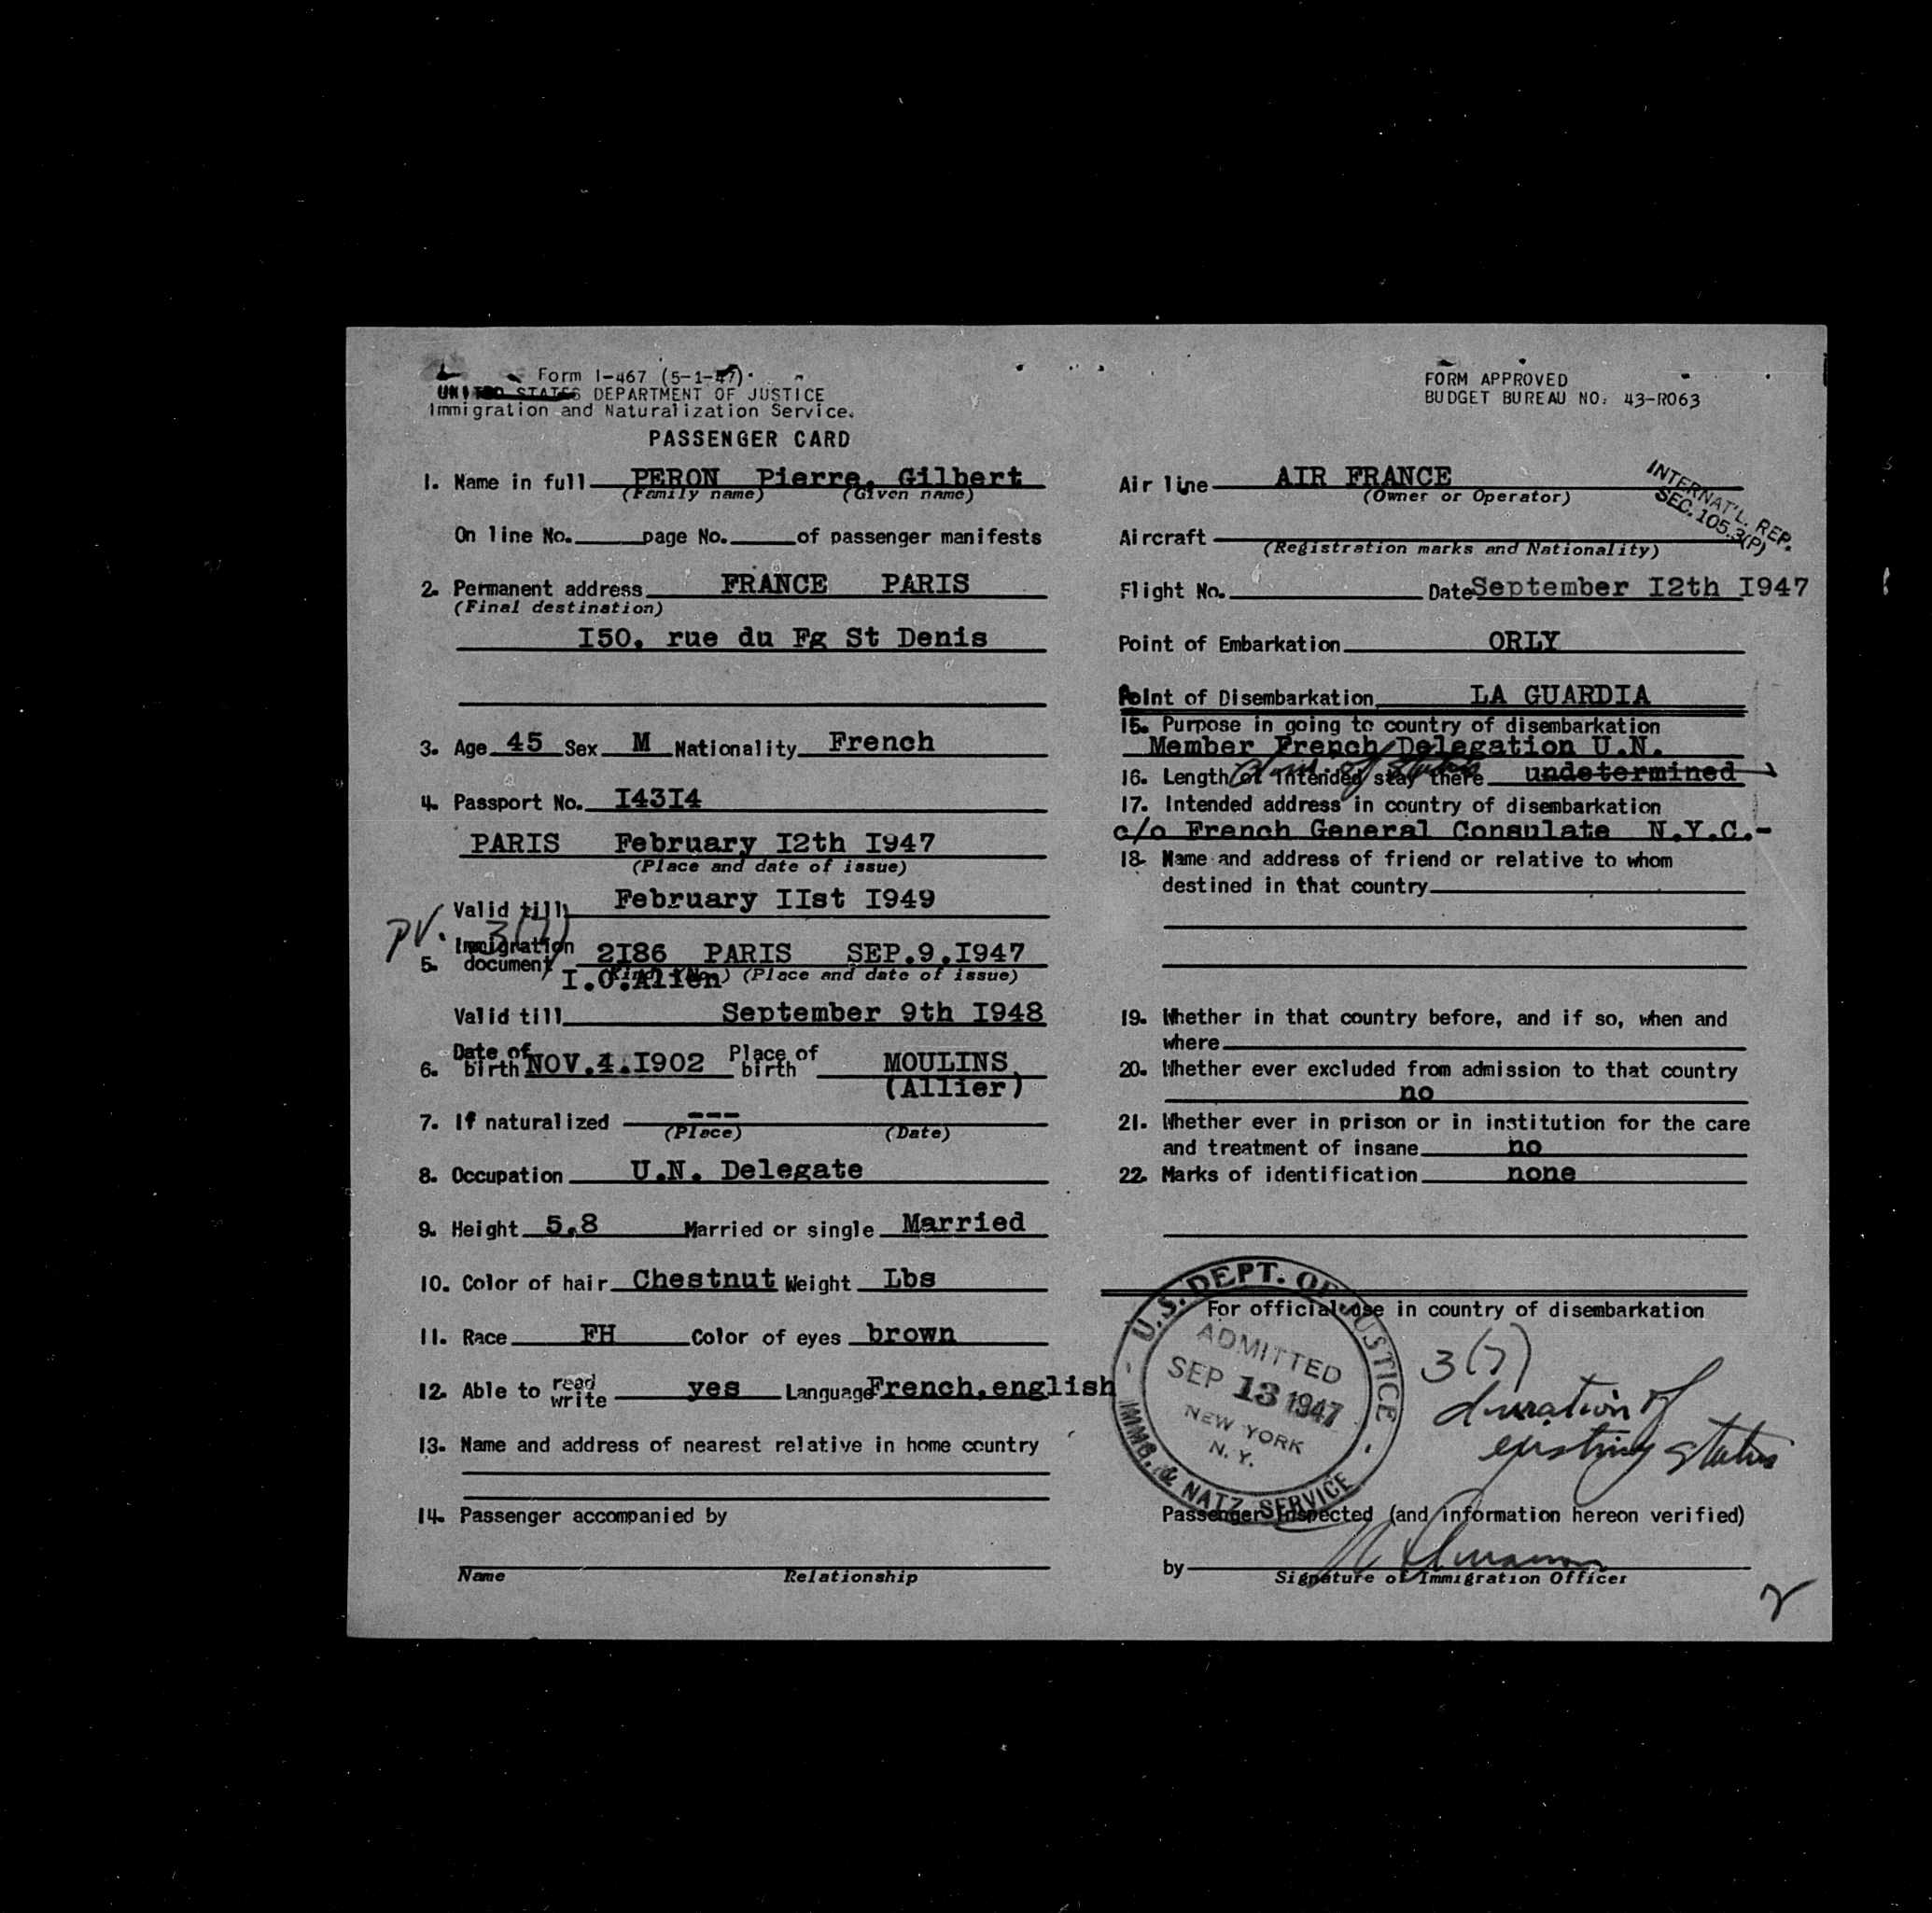 Form I-467 (5-1-47)
UNITED STATES DEPARTMENT OF JUSTICE
Immigration and Naturalization Service.
PASSENGER CARD
1. Name in full PERON Pierre, Gilbert
(Family name) (Given name)
On line No. page No. of passenger manifests
2. Permanent address FRANCE PARIS
(Final destination)
I50, rue du Fg St Denis
3. Age 45 Sex M Nationality French
4. Passport No. I43I4
PARIS February I2th I947
(Place and date of issue)
Valid till February IIst I949
PV. 3(7)
5. Immigration document 2I86 PARIS SEP.9.I947
I.O.Alien (Place and date of issue)
Valid till September 9th I948
6. Date of birth NOV.4.I902 Place of birth MOULINS
(Allier)
7. If naturalized ---
(Place) (Date)
8. Occupation U.N. Delegate
9. Height 5,8 Married or single Married
10. Color of hair Chestnut Weight Lbs
11. Race FH Color of eyes brown
12. Able to read write yes Language French,english
13. Name and address of nearest relative in home country
14. Passenger accompanied by
Name Relationship
FORM APPROVED
BUDGET BUREAU NO. 43-R063
Air line AIR FRANCE
(Owner or Operator)
INTERNAT'L. REP.
SEC. 105.3(P)
Aircraft
(Registration marks and Nationality)
Flight No. Date September I2th I947
Point of Embarkation ORLY
Point of Disembarkation LA GUARDIA
15. Purpose in going to country of disembarkation
Member French Delegation U.N.
16. Length of intended stay there undetermined
17. Intended address in country of disembarkation
c/o French General Consulate N.Y.C.-
18. Name and address of friend or relative to whom
destined in that country
19. Whether in that country before, and if so, when and
where
20. Whether ever excluded from admission to that country
no
21. Whether ever in prison or in institution for the care
and treatment of insane no
22. Marks of identification none
For official use in country of disembarkation
U.S. DEPT. OF JUSTICE
ADMITTED
SEP 13 1947
NEW YORK
N. Y.
IMMG. & NATZ. SERVICE
3(7)
duration of
existing status
Passenger inspected (and information hereon verified)
by
Signature of Immigration Officer